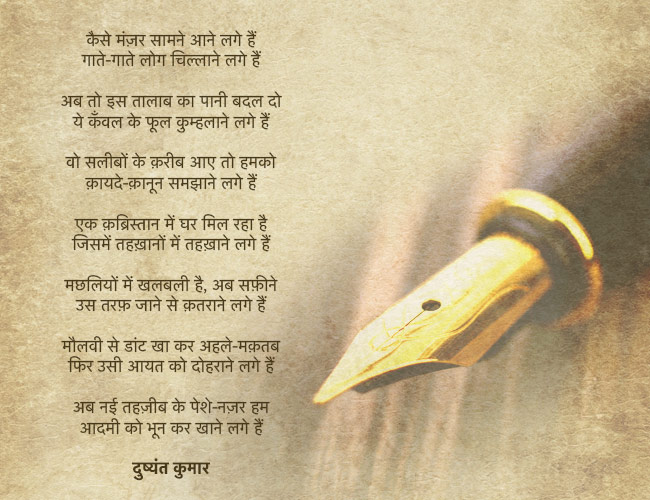 कैसे मंज़र सामने आने लगे हैं
गाते-गाते लोग चिल्लाने लगे हैं
अब तो इस तालाब का पानी बदल दो
ये कँवल के फूल कुम्हलाने लगे हैं
वो सलीबों के क़रीब आए तो हमको
क़ायदे-क़ानून समझाने लगे हैं
एक क़ब्रिस्तान में घर मिल रहा है
जिसमें तहख़ानों में तहख़ाने लगे हैं
मछलियों में खलबली है, अब सफ़ीने
उस तरफ़ जाने से क़तराने लगे हैं
मौलवी से डांट खा कर अहले-मक़तब
फिर उसी आयत को दोहराने लगे हैं
अब नई तहज़ीब के पेशे-नज़र हम
आदमी को भून कर खाने लगे हैं
दुष्यंत कुमार